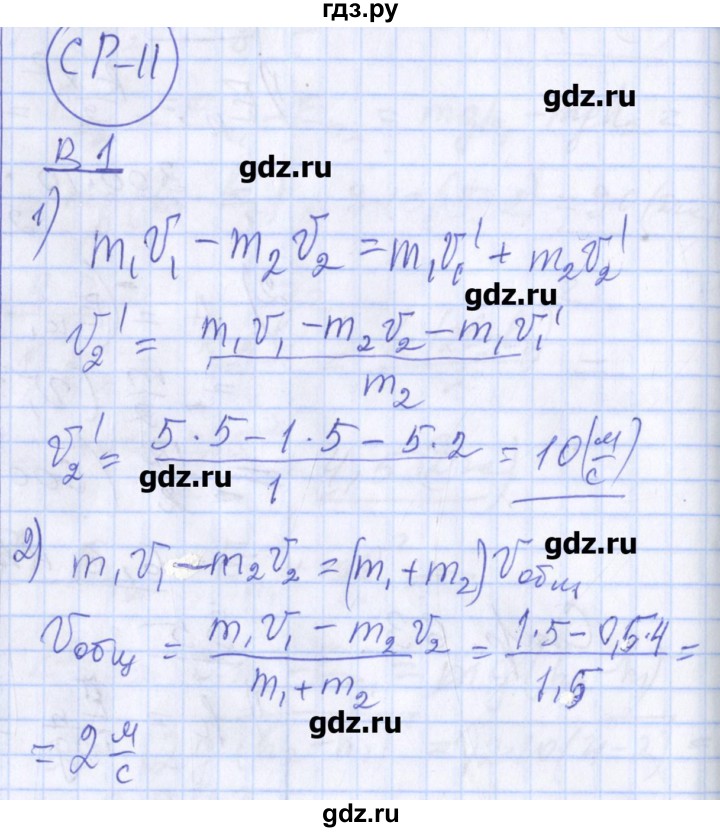 гдз.ру
СР-11
gdz.ru
В 1
gdz.ru
1) m₁v₁ - m₂v₂ = m₁v₁' + m₂v₂'
gdz.ru
v₂' = (m₁v₁ - m₂v₂ - m₁v₁')/m₂
v₂' = (5·5 - 1·5 - 5·2)/1 = 10(м/с)
gdz.ru
gdz.ru
2) m₁v₁ - m₂v₂ = (m₁ + m₂)vобщ
vобщ = (m₁v₁ - m₂v₂)/(m₁ + m₂) = (1·5 - 0,5·4)/1,5 =
gdz.ru
= 2 м/с
gdz.ru